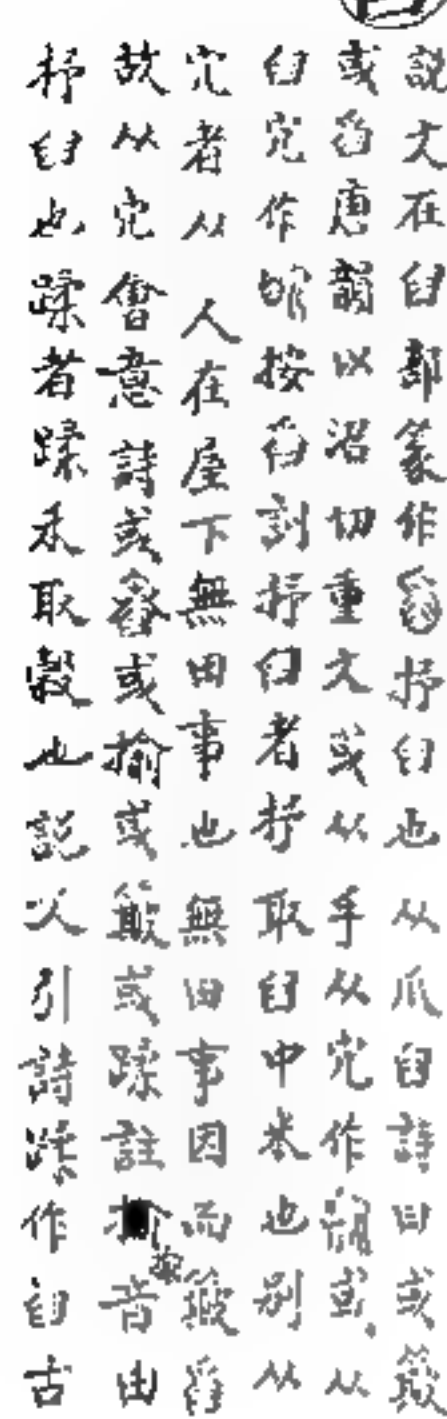 說文在臼部篆作舀抒臼也从爪臼詩曰或簸
或舀唐韻以沼切重文或从手从宂作抭或从
臼宂作䑔按舀訓抒臼者抒取臼中米也別从
宂者从人在屋下無田事也無田事因而簸舀
故从宂會意詩或舂或揄或簸或蹂註揄音由
抒臼也蹂者蹂禾取穀也說文引詩蹂作臼古